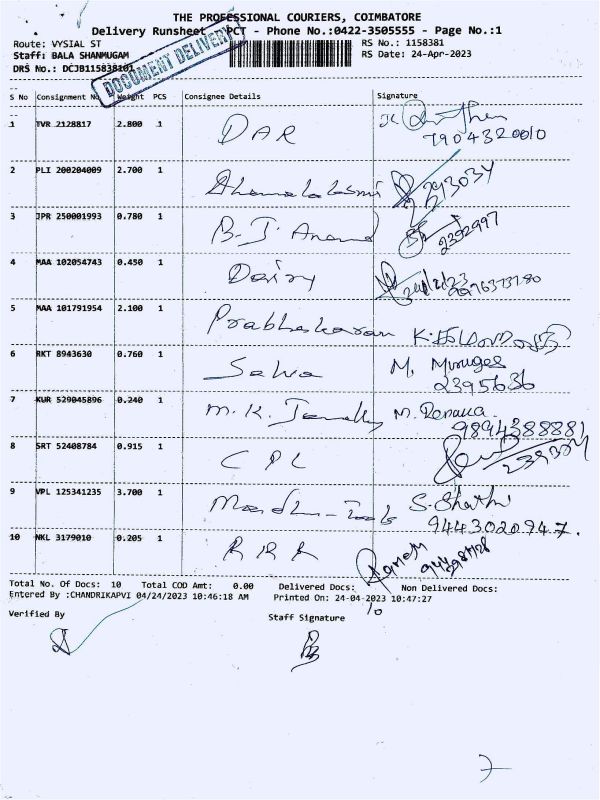 THE PROFESSIONAL COURIERS, COIMBATORE
Delivery Runsheet - PCT - Phone No.:0422-3505555 - Page No.:1
Route: VYSIAL ST RS No.: 1158381
Staff: BALA SHANMUGAM RS Date: 24-Apr-2023
DRS No.: DCJB115838101
DOCUMENT DELIVERY
S No Consignment No Weight PCS Consignee Details Signature
1 TVR 2128817 2.800 1 DAR
7904320010
2 PLI 200204009 2.700 1 Dhanalakshmi 2293034
3 JPR 250001993 0.780 1 B. J. Anand 2392997
4 MAA 102054743 0.450 1 Dairy
5 MAA 101791954 2.100 1 Prabhakaran
6 RKT 8943630 0.760 1 Selva M. Muruges
2395636
7 KUR 529045896 0.240 1 M. K. M. Renuka
9894388881
8 SRT 52408784 0.915 1 CPL
9 VPL 125341235 3.700 1 S. Shathi
9443020947.
10 NKL 3179010 0.205 1 RRR Ramesh
Total No. Of Docs: 10 Total COD Amt: 0.00 Delivered Docs: Non Delivered Docs:
Entered By :CHANDRIKAPVI 04/24/2023 10:46:18 AM Printed On: 24-04-2023 10:47:27
10
Verified By Staff Signature